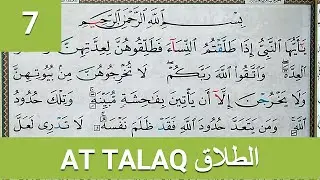 7
بِسْمِ اللَّهِ الرَّحْمَٰنِ الرَّحِيمِ
يَٰٓأَيُّهَا النَّبِيُّ إِذَا طَلَّقْتُمُ النِّسَآءَ فَطَلِّقُوهُنَّ لِعِدَّتِهِنَّ
الْعِدَّةَ ۖ وَاتَّقُوا اللَّهَ رَبَّكُمْ ۖ لَا تُخْرِجُوهُنَّ مِنۢ بُيُوتِهِنَّ
وَلَا يَخْرُجْنَ إِلَّآ أَن يَأْتِينَ بِفَٰحِشَةٍ مُّبَيِّنَةٍ ۚ وَتِلْكَ حُدُودُ
اللَّهِ ۚ وَمَن يَتَعَدَّ حُدُودَ اللَّهِ فَقَدْ ظَلَمَ نَفْسَهُۥ ۚ لَا تَدْرِى لَعَلَّ
AT TALAQ الطلاق